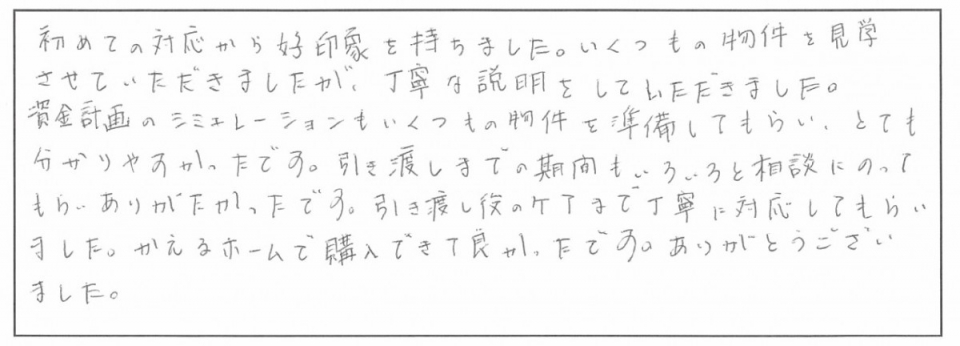 初めての対応から好印象を持ちました。いくつもの物件を見学
させていただきましたが、丁寧な説明をしていただきました。
資金計画のシミュレーションもいくつもの物件を準備してもらい、とても
分かりやすかったです。引き渡しまでの期間もいろいろと相談にのって
もらいありがたかったです。引き渡し後のケアまで丁寧に対応してもらい
ました。かえるホームで購入できて良かったです。ありがとうござい
ました。